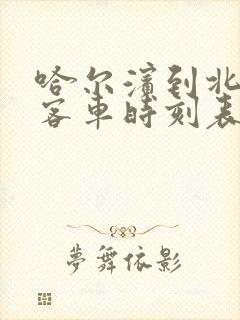 哈尔滨到北
客车时刻表
夢舞依影